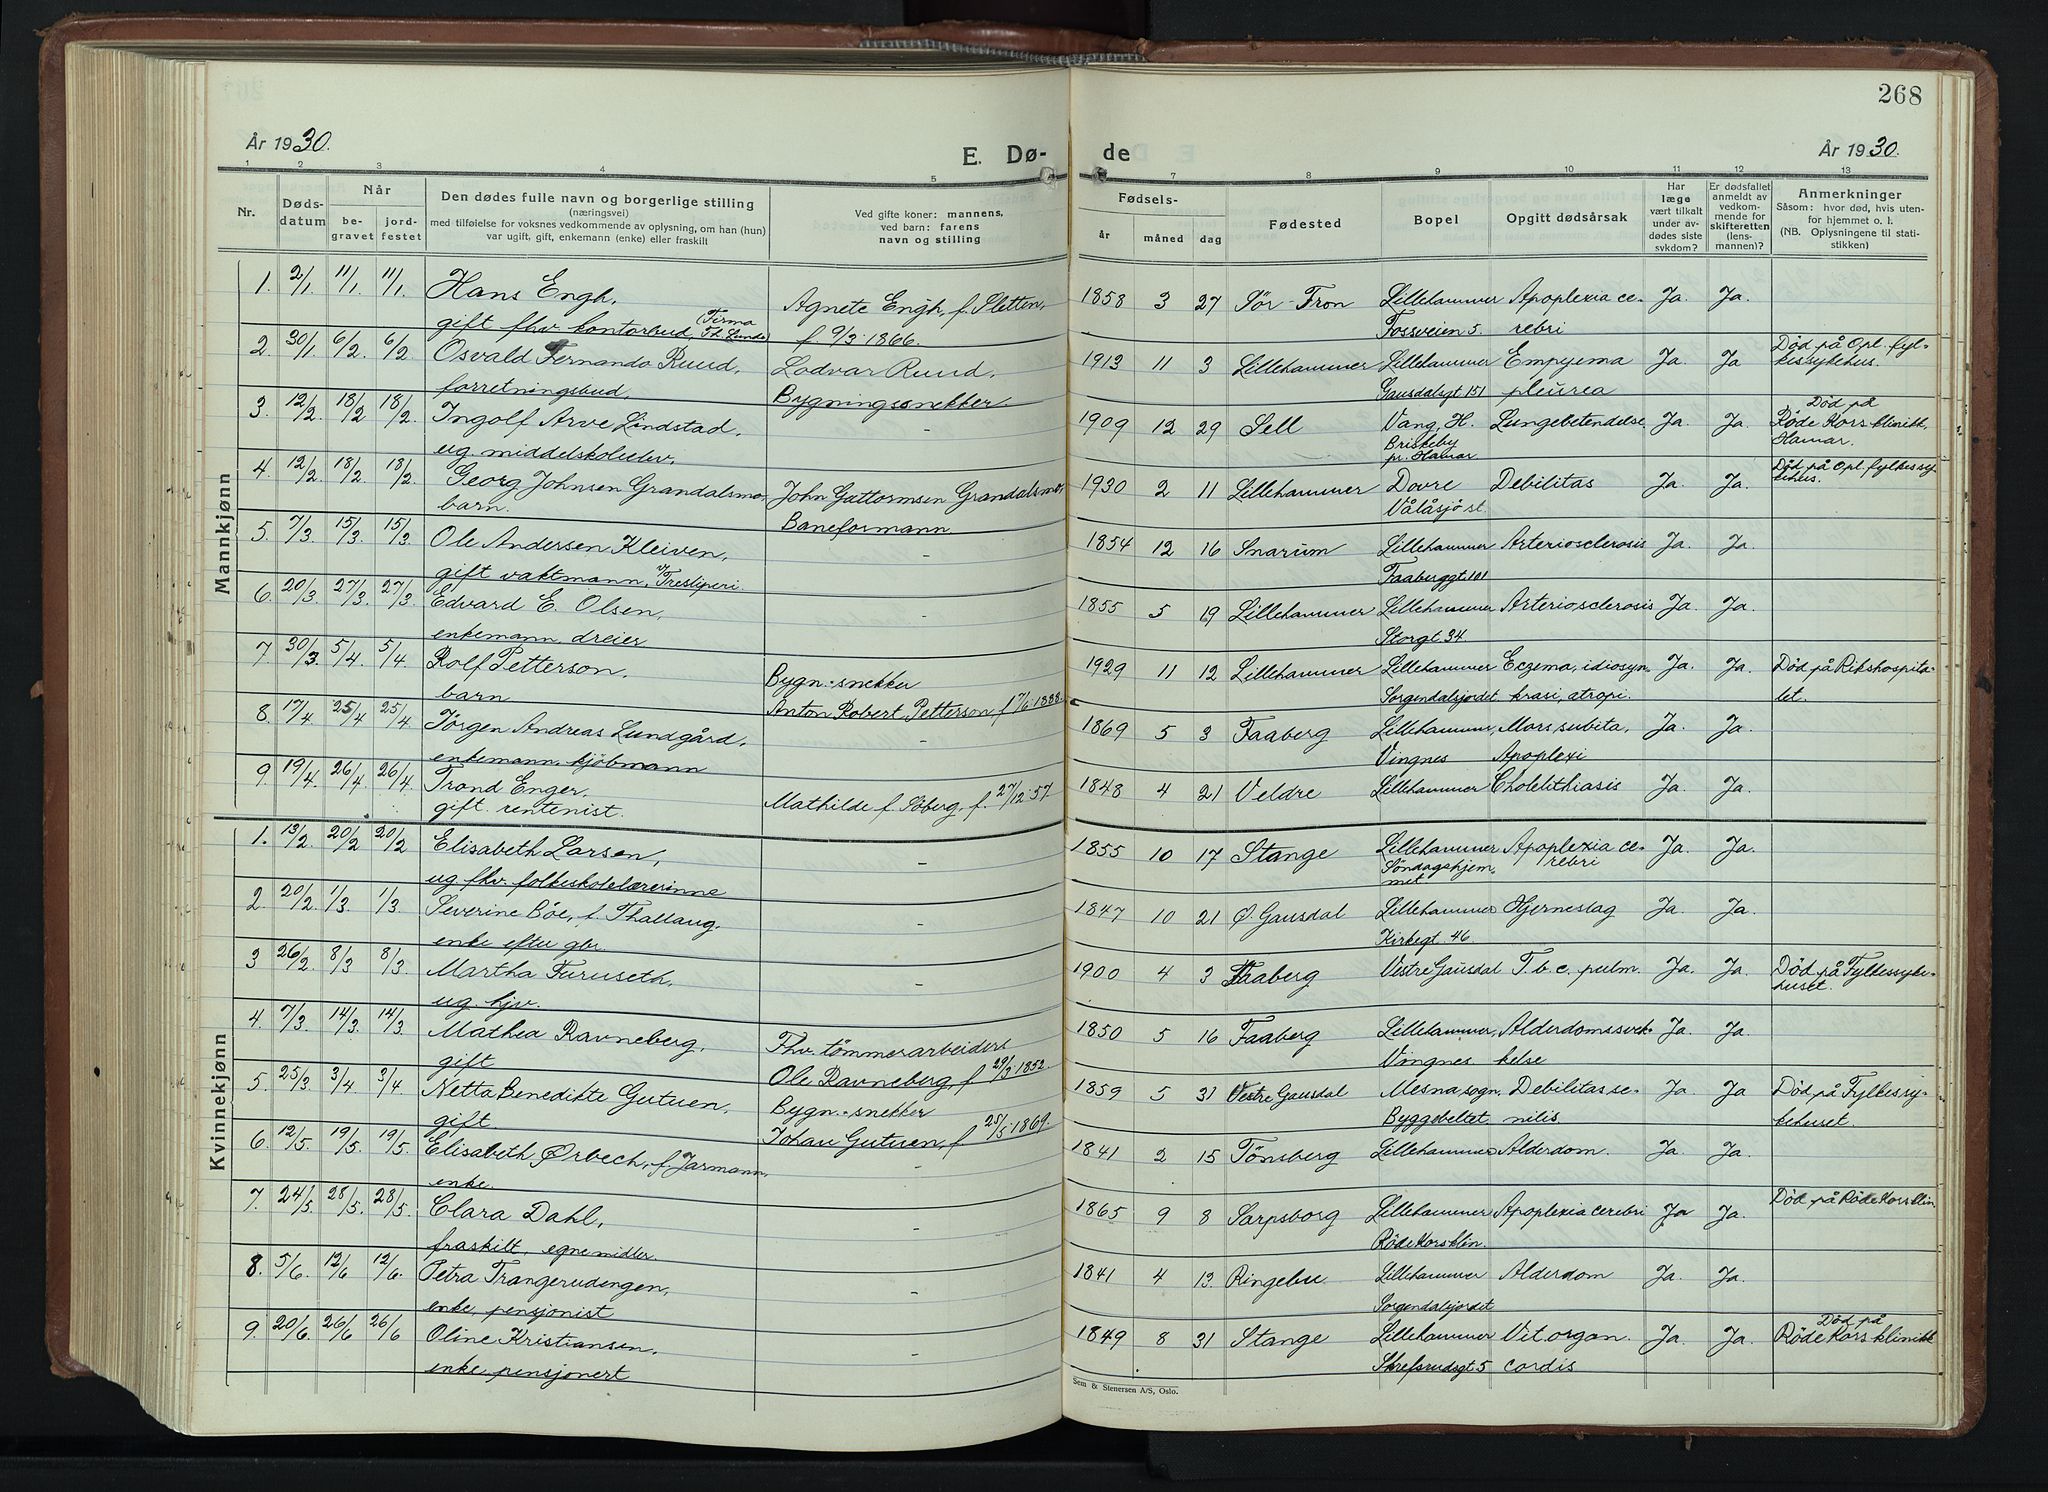 268
År 1930.
E. Dø-
de
År 1930.
1 2 3 4 5 7 8 9 10 11 12 13
Nr.
Døds-
datum
Når
be-
gravet
jord-
festet
Den dødes fulle navn og borgerlige stilling
(næringsvei)
med tilføielse for voksnes vedkommende av oplysning, om han (hun)
var ugift, gift, enkemann (enke) eller fraskilt
Ved gifte koner: mannens,
ved barn: farens
navn og stilling
Fødsels-
år måned dag
Fødested
Bopel
Opgitt dødsårsak
Har
læge
vært tilkalt
under av-
dødes siste
sykdom?
Er dødsfallet
anmeldt av
vedkom-
mende for
skifteretten
(lens-
mannen)?
Anmerkninger
Såsom: hvor død, hvis uten-
for hjemmet o. l.
(NB. Oplysningene til stati-
stikken)
Mannkjønn
1. 2/1. 11/1. 11/1. Hans Engh, Agnete Engh, f. Sletten, 1858 3 27 Sör-Fron Lillehammer Apoplexia ce- Ja. Ja.
gift fhv. kontorbud, (Firma Th. Lunde) f 9/3-1866. Fossveien 5. rebri
2. 30/1. 6/2. 6/2. Osvald Fernando Ruud, Lodvar Ruud, 1913 11 3 Lillehammer Lillehammer Empyema Ja. Ja Död på Opl. fyl-
kessykehus.
forretningsbud. Bygningssnekker. Gausdalsgt 151 pleurea
3. 12/2. 18/2 18/2. Ingolf Arve Lindstad, - 1909 12 29 Sell Vang, H. Lungebetendelse Ja. Ja. Död på
Röde Kors klinikk,
Hamar.
ug. middelskoleelev. Briskeby
pr. Hamar
4. 12/2. 18/2. 18/2. Georg Johnsen Grandalsmo, John Guttormsen Grandalsmo, 1930 2 11 Lillehammer Dovre Debilitas Ja. Ja. Död på Opl. fylkessy-
kehus.
barn. Baneformann. Vålåsjö st.
5. 7/3. 15/3. 15/3. Ole Andersen Kleiven, - 1854 12 16 Snarum Lillehammer Arteriosclerosis Ja. Ja.
gift vaktmann, v/ Tresliperi. Faaberggt. 101
6. 20/3. 27/3. 27/3. Edvard E. Olsen, - 1855 5 19 Lillehammer Lillehammer Arteriosclerosis Ja. Ja.
enkemann, dreier Storgt 34
7. 30/3. 5/4. 5/4. Rolf Petterson, Bygn.-snekker 1929 11 12 Lillehammer Lillehammer Eczema, idiosyn- Ja. Ja. Död på Rikshospita-
let.
barn Anton Robert Petterson, f 17/6-1888. Sorgendalsjordet krasi, atropi.
8. 17/4. 25/4 25/4. Jörgen Andreas Lundgård, - 1869 5 3 Faaberg Lillehammer, Mors subita, Ja. Ja.
enkemann, kjöbmann Vingnes Apoplexi
9. 19/4. 26/4. 26/4. Trond Enger, Mathilde f. Söberg, f. 27/12-57. 1848 4 21 Veldre Lillehammer Cholelithiasis Ja. Ja.
gift. rentenist.
Kvinnekjønn
1. 13/2. 20/2 20/2 Elisabeth Larsen, - 1855 10 17 Stange Lillehammer Apoplexia ce-
rebri Ja Ja.
ug fhv. folkeskolelærerinne Söndagshjem-
met
2. 20/2. 1/3. 1/3. Severine Böe, f. Thallaug. - 1847 10 21 Ø. Gausdal Lillehammer Hjerneslag Ja. Ja.
enke efter gbr. Kirkegt. 46
3 26/2. 8/3 8/3. Martha Furuseth, - 1900 4 3 Faaberg Vestre Gausdal T.b.c. pulm. Ja. Ja. Död på Fylkessyke-
huset.
ug. hjv.
4. 7/3. 14/3. 14/3. Mathea Ravneberg, Fhv. tömmerarbeider 1850 5 16 Faaberg Lillehammer, Alderdomssvek- Ja. Ja.
gift Ole Ravneberg, f 29/3-1852. Vingnes kelse
5. 25/3. 3/4. 3/4. Netta Benedikte Gutuen, Bygn.-snekker 1859 5 31 Vestre Gausdal Mesna sogn, Debilitas se- Ja. Ja Död på Fylkessy-
kehuset.
gift. Johan Gutuen, f 25/5-1869. Byggebeltet nilis.
6. 12/5 19/5. 19/5. Elisabeth Ørbech, f. Jarmann, - 1841 2 15 Tönsberg Lillehammer Alderdom. Ja. Ja.
enke.
7. 24/5. 28/5. 28/5. Clara Dahl, - 1865 9 8 Sarpsborg Lillehammer Apoplexia cerebri Ja Ja. Död på Röde Kors klin.
fraskilt, egne midler. Röde Kors klin.
8. 5/6. 12/6 12/6. Petra Trangerudengen, - 1841 4 13. Ringebu Lillehammer Alderdom Ja. Ja.
enke, pensjonist Sorgendalsjordet
9. 20/6. 26/6 26/6 Oline Kristiansen, - 1849 8 31 Stange Lillehammer Vit. organ. Ja. Ja. Död på
Röde Kors klinikk
enke, pensjonert Skrefsrudsgt 5 cordis
Sem & Stenersen A/S, Oslo.